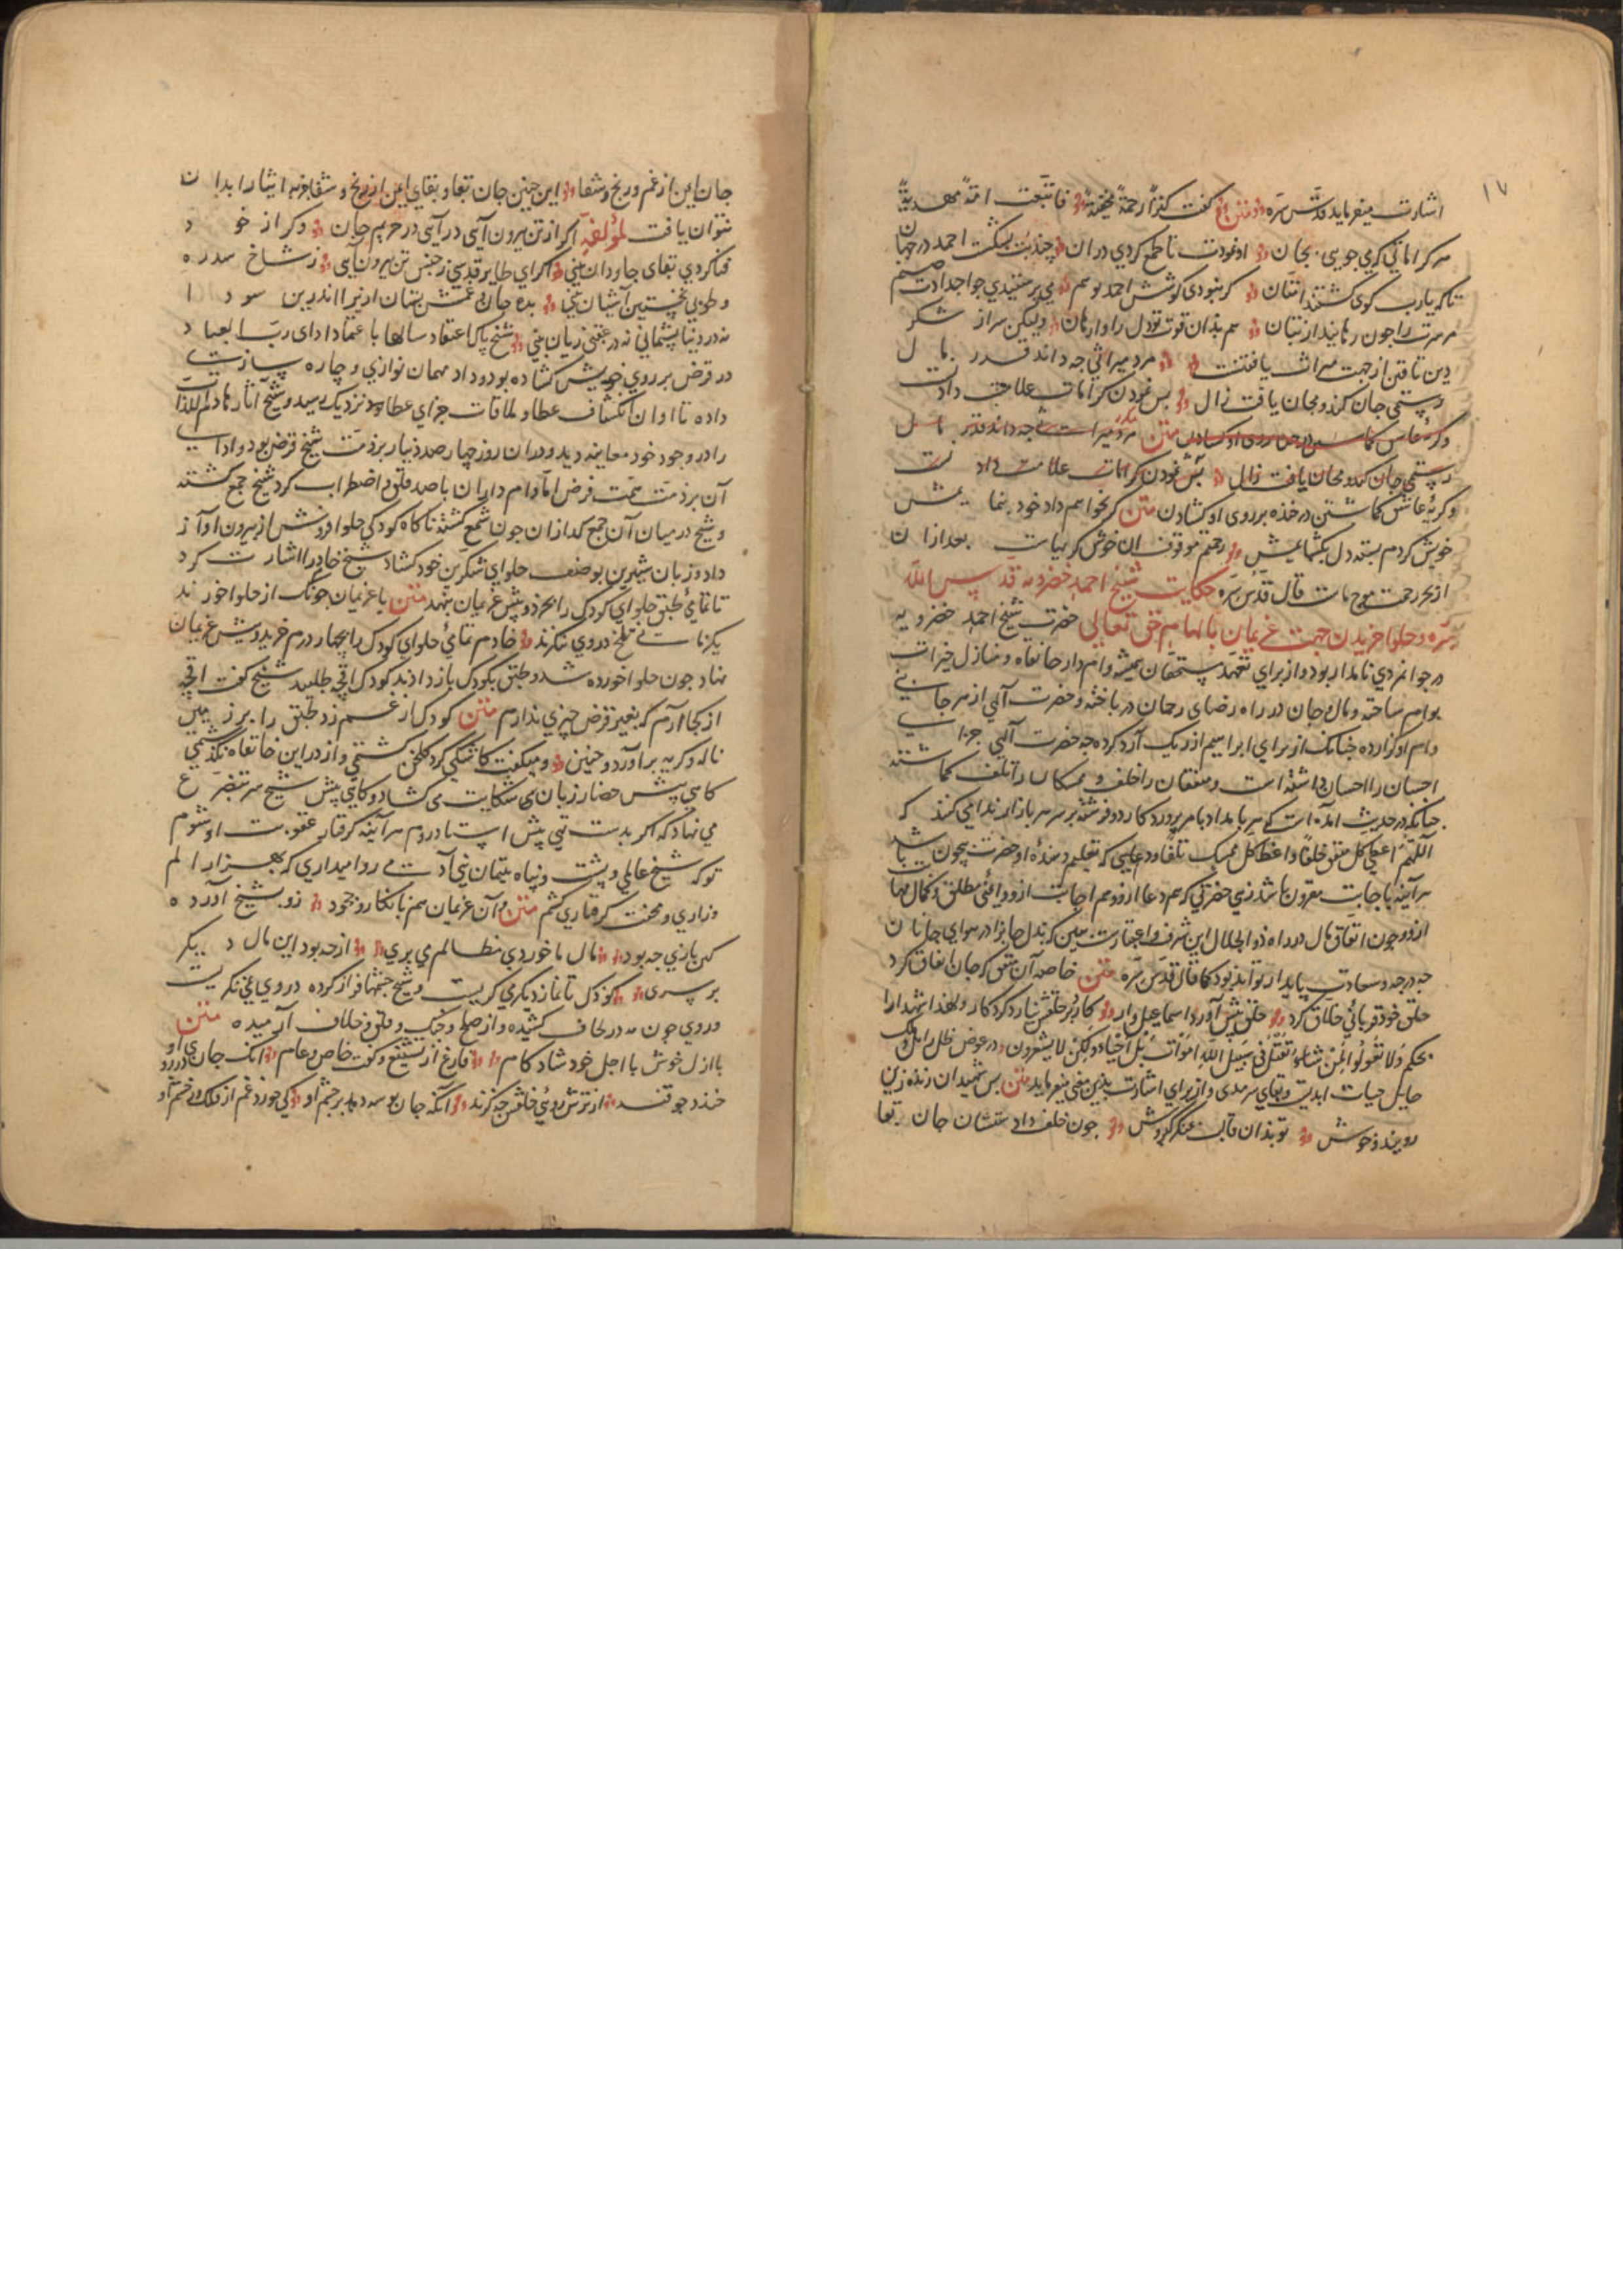 ١٧
اشارت میفرماید قدّس سرّه متن کفت کنزًا رحمةً مخفیّةً فابتعثت امّةً مهدیّةً
هر کراماتی که می جویی بجان او نمودت تا طمع کردی در ان چند بت بشکست احمد در جهان
تا که یا رب کوی کشتند امّتان کر نبودی کوشش احمد تو هم می پرستیدی جو اجدادت صنم
سرت را چون رهانید از بتان هم بذان قوت تو دل را وا رهان ولیکن سر از شکر
دین تافتن از جهت میراث یافتنست مرد میراثی جه داند قدر مال
رستمی جان کند و مجان یافت زال بس نمودن کرامات علامت دادنست
رستمی جان کند و مجان یافت زال بس نمودن کرامات علامت دادنست
و کریهٔ عاش کماشتن در خنده بر روی او کشادن متن کر نخواهم داد خود ننمایمش
خویش کردم بسته دل بکشایمش رحمتم موقوف ان خوش کریهاست بعد از ان
از بحر رحمت موج خاست قال قدس سرّه حکایت شیخ احمد خضرویه قدس الله
سرّه و حلوا خریدن جهت غریمان بالهام حق تعالی حضرت شیخ احمد خضرویه
در جوانمردی نامدار بود و از برای تعهد مستحقان همیشه وام دار خانقاه و منازل خیرات
بوام ساخته و مال و جان در راه رضای رحمان در باخته و حضرت آلهی از هر جانبی
وام او کزارده جنانک از برای ابراهیم از ریک آرد کرده جه حضرت آلهی جزاء
احسان را احسان داشته است و منفقان را خلف و ممسکان را تلف کماشته
جنانکه در حدیث امده است که هر بامداد بامر پروردکار دو فرشته بر سر هر بازار ندا می کنند که
اللّهمّ اعط کل منفق خلفًا و اعط کل ممسک تلفًا و دعایی که تعلیم دهندهٔ او حضرت بیچون باشد
هر آینه باجابت مقرون باشد زهی حضرتی که هم دعا ازو و هم اجابت ازو و ایمنی مطلق و کمال مهابت
ازو و چون انفاق مال در راه ذو الجلال این شرف و اعتبارست ببین که بذل جانرا در هوای جانان
جه درجه و سعادت پایدار تواند بود کما قال قدّس سرّه متن خاصه آن منفق که جان انفاق کرد
حلق خود قربانئ خلاق کرد حلق پیش آورد اسماعیل وار کارد بر حلقش نیارد کرد کار و لهذا شهدا را
بحکم وَلا تَقولوا لِمَنْ یُقتَلُ فی سَبیل اللهِ امواتٌ بَل احیاءٌ ولکِن لا یشعرون در عوض ظل زائل و ملک
حایل حیات ابدیت و بقای سرمدی و از برای اشارت بدین معنی میفرماید متن بس شهیدان زنده زین
رویند و خوش تو بذان قالب منکر کبروش جون خلف دادستشان جان بقا
جان ایمن از غم و رنج و شقا این چنین جان بقا و بقای ایمن از رنج و شقا جز به ایثار ابدان
نتوان یافت لمؤلفه اکر از تن برون آیی در آیی در حریم جان وکر از خود
فنا کردی بقای جاودان بینی اکر ای طایر قدسی ز حبس تن برون آیی ز شاخ سدره
و طوبی نخستین آشیان بینی بده جان در غمش پنهان ازیرا اندرین سودا
نه در دنیا پشیمانی نه در عقبی زیان بینی شیخ پاک اعتقاد سالها با اعتماد ادای ربّ العباد
در قرض بر روی خویش کشاده بود و داد مهمان نوازی و چاره سازیت
داده تا اوان انکشاف عطا و ملاقات جزای عطا نزدیک رسید و شیخ آثار هادم اللذات
را در وجود خود معاینه دید و در ان روز چهار صد دینار بر ذمّت شیخ قرض بود و ادای
آن بر ذمّت همّت فرض امّا وام داران با صد قلق و اضطراب کرد شیخ جمع کشته
و شیخ در میان آن جمع کدازان جون شمع کشته ناکاه کودکی حلوا فروش از بیرون آواز
داد و زبان شیرین بوصف حلوای شکرین خود کشاد شیخ خادم را اشارت کرد
تا تمامئ طبق حلوای کودک را بخرد و پیش غریمان نهد متن تا غریمان جونک از حلوا خورند
یکزمانی تلخ در وی ننکرند خادم تمامئ حلوای کودک را بچهار درم خرید و پیش غریمان
نهاد جون حلوا خورده شد و طبق بکودک باز دادند کودک اقچه طلبید شیخ کفت اقچه
از کجا آرم که بغیر قرض چیزی ندارم متن کودک از غم زد طبق را بر زمین
ناله و کریه برآورد و حنین و میکفت کاشکی کرد کلخن کشتمی و از در این خانقاه نکذشتمی
کاهی پیش حضار زبان شکایت می کشاد و کاهی پیش شیخ سر تضرع
می نهاد که اکر بدست تهی پیش استاد روم هر آینه کرفتار عقوبت او شوم
تو که شیخ عالمی و پشت و پناه یتیمان بنی آدمی روا میداری که بهزار الم
و زاری و محنت کرفتاری کشم متن و آن غریمان هم بانکار و جحود رو بشیخ آورده
کین بازی جه بود مال ما خوردی مظالم می بری از جه بود این مال دیکر
بر سری کودک تا نماز دیکر می کریست و شیخ جشمها فراز کرده در وی نمی نکریست
و روی چون مه در لحاف کشیده و از صلح و جنک و وفق و خلاف آرمیده متن
با ازل خوش با اجل خود شاد کام فارغ از تشنیع و کفت خاص و عام آنک جان در روی او
خندد جو قند از ترش رویئ خلقش جه کزند آنکه جان بوسه دهد بر چشم او کی خورد غم از فلک و ز خشم او